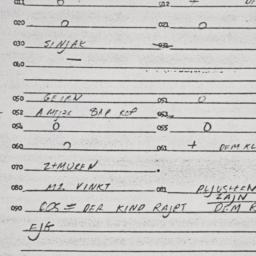 011 O 012 +
020 O 021 O
030 SINJAK 031
040 —
050 GEIRN 051 O
052 A MEIZE BAP KOP 053
054 O 055 O
060 O 061 + DEM KL
070 Z+MUREN
080 M1 VINKT 081 PLJUSHTEN
ZAJN
090 COS = DER KIND RAJPT DEM K
EJB